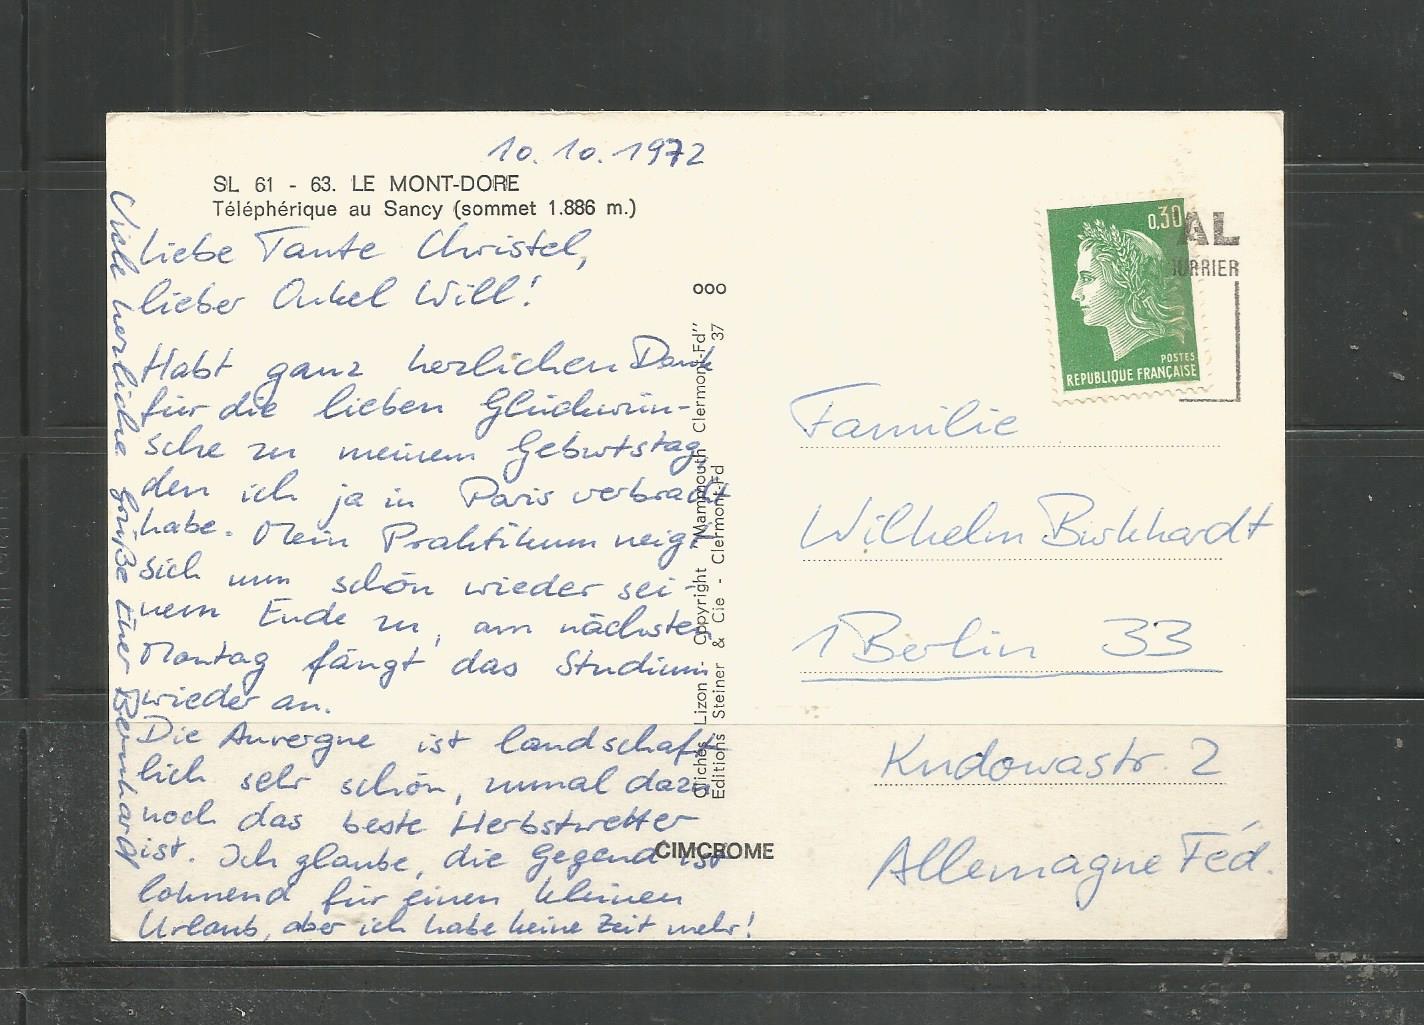 10.10.1972
SL 61 - 63. LE MONT-DORE
Téléphérique au Sancy (sommet 1.886 m.)
Liebe Tante Christel,
lieber Onkel Will!
Habt ganz herzlichen Dank
für die lieben Glückwün-
sche zu meinem Geburtstag,
den ich ja in Paris verbracht
habe. Mein Praktikum neigt
sich nun schön wieder sei-
nem Ende zu, am nächsten
Montag fängt das Studium
wieder an.
Die Auvergne ist landschaft-
lich sehr schön, zumal dazu
noch das beste Herbstwetter
ist. Ich glaube, die Gegend ist
lohnend für einen kleinen
Urlaub, aber ich habe keine Zeit mehr!
Viele herzliche Grüße Euer Bernhardt
ooo
Clichés Lizon - Copyright "Mammouth Clermont-Fd"
Editions Steiner & Cie - Clermont-Fd 37
CIMCROME
0,30
POSTES
REPUBLIQUE FRANÇAISE
AL
URRIER
Familie
Wilhelm Burkhardt
1 Berlin 33
Kudowastr. 2
Allemagne Féd.